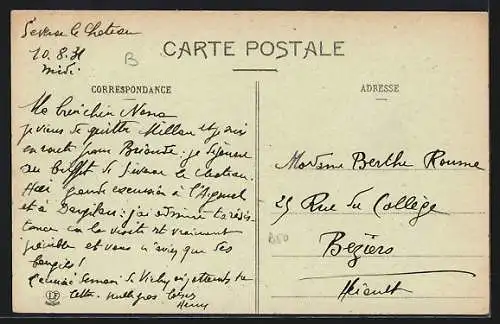 Severac le Chateau
10.8.31
midi
B
CARTE POSTALE
CORRESPONDANCE
ADRESSE
Ma bien chère Nana
Je viens de quitter Millau et je suis
en route pour Brioude. je déjeune
au buffet de Severac le Chateau.
Hier grande excursion à l'Aigoual
et à Dargilan: j'ai admiré ta résis-
tance car la visite est vraiment
pénible et vous n'aviez que des
bougies!
de Vichy
lettre. mille gros baisers
Henri
Madame Berthe Roume
25 Rue du Collège
Béziers
Hérault
B50